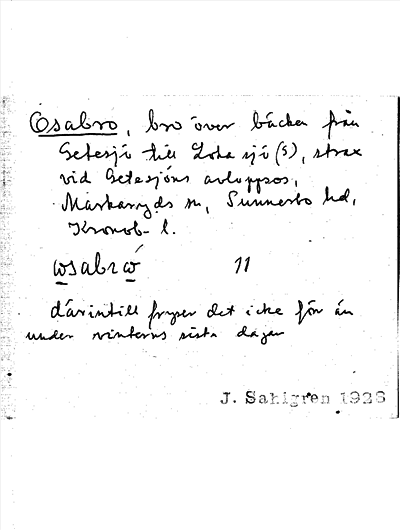 Osabro, bro över bäcken från
Getesjö till Loka sjö (s), strax
vid Getesjöns avloppsos,
Markaryds sn, Sunnerbo hd,
Kronob. l.
ωsabrώ 11
därintill fryser det icke för än
under vinterns sista dagar
J. Sahlgren 1928